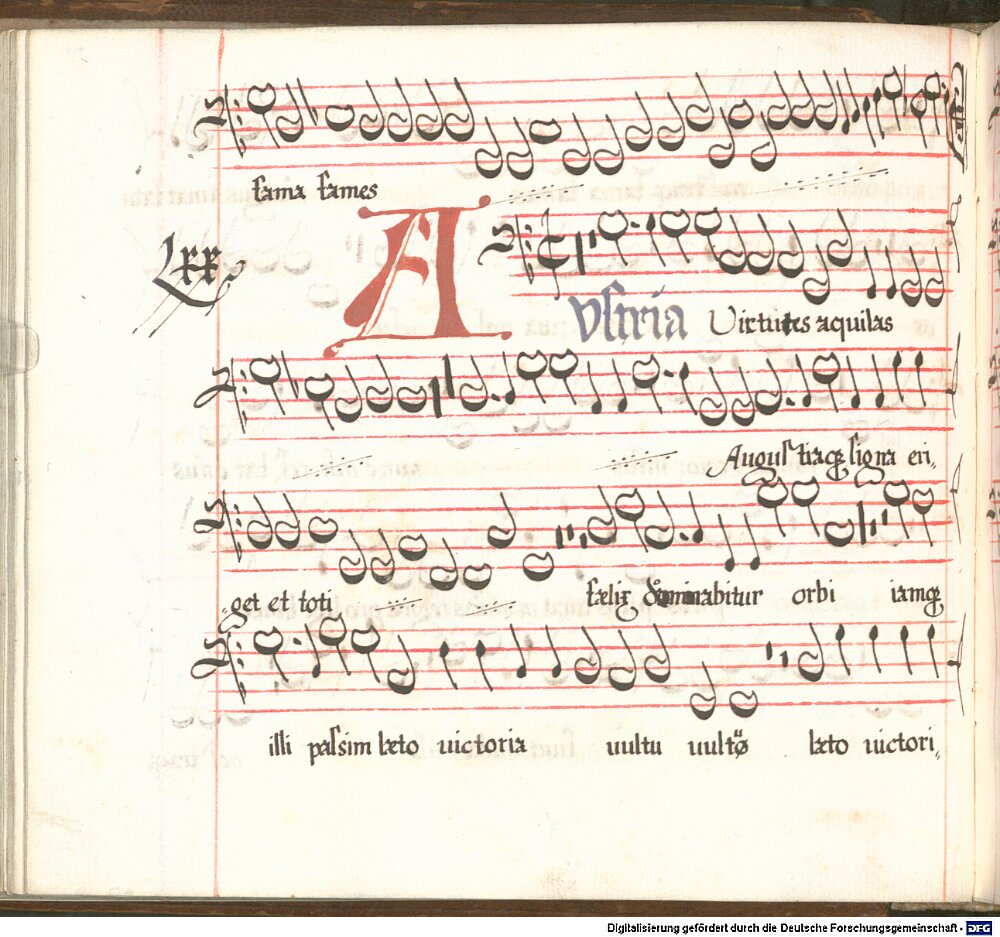 fama fames
Lxx
Austria Virtutes aquilas
Augustiaq́ʒ signa eri„
„get et toti fælix dominabitur orbi iamqʒ
illi passim læto uictoria uultu uultu læto uictori„
Digitalisierung gefördert durch die Deutsche Forschungsgemeinschaft - DFG